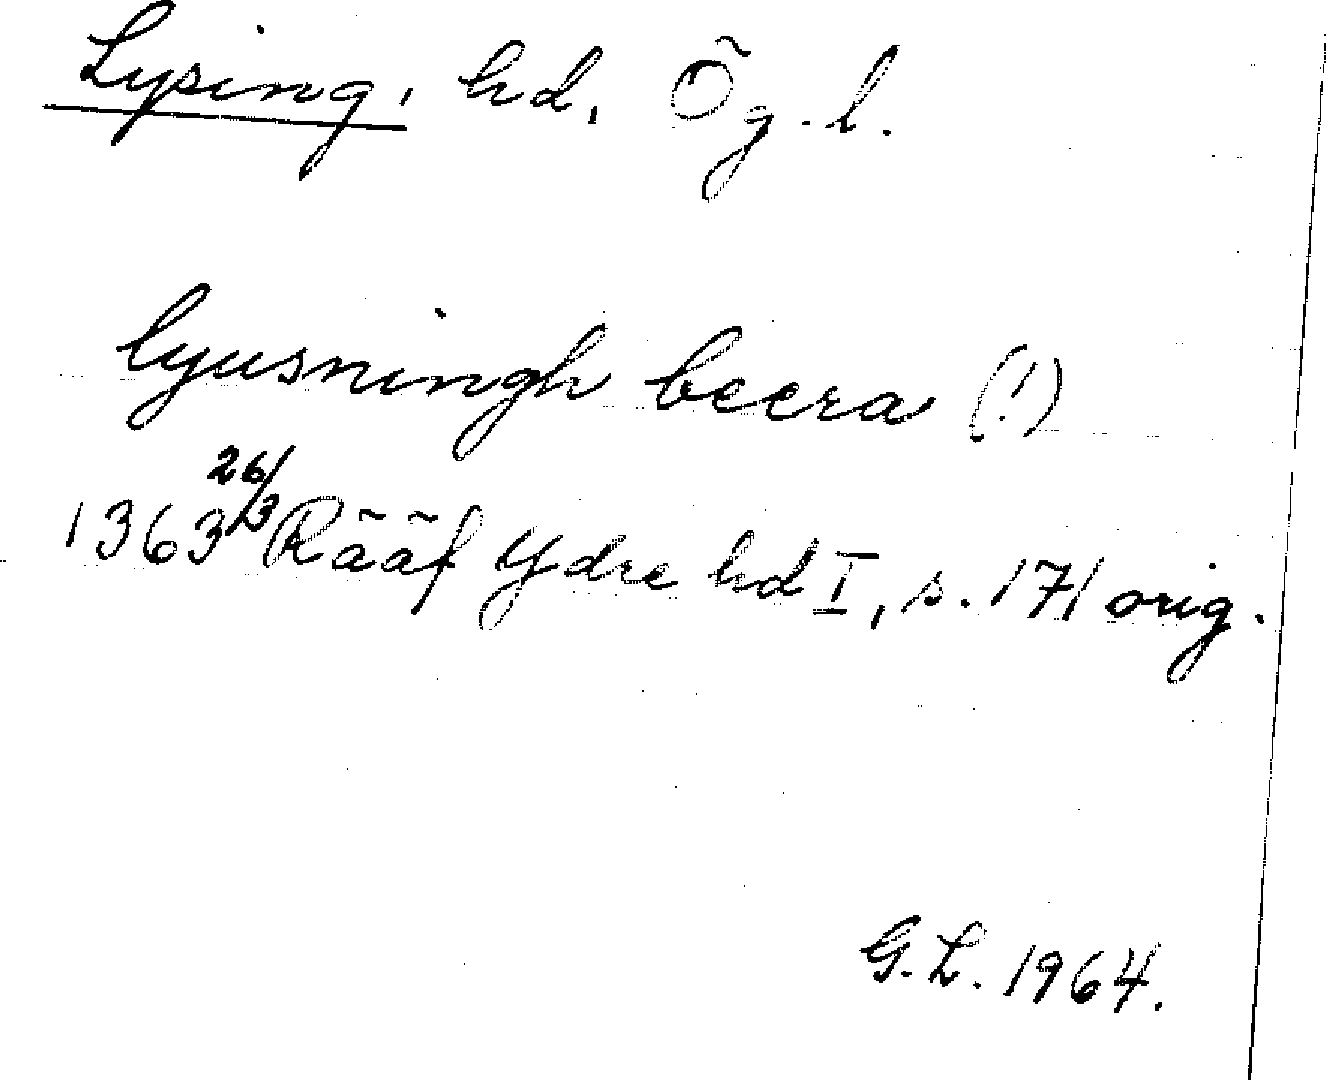 Lysing, hd, Ög. l.
lyusningh beera (!)
1363 26/3 Rääf Ydre hd I, s. 171 orig.
G. L. 1964.